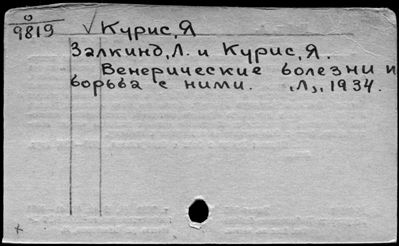 0
9819 √ Курис, Я
Залкинд, Л. и Курис, Я.
Венерические болезни и
борьба с ними. „Л“, 1934.
x